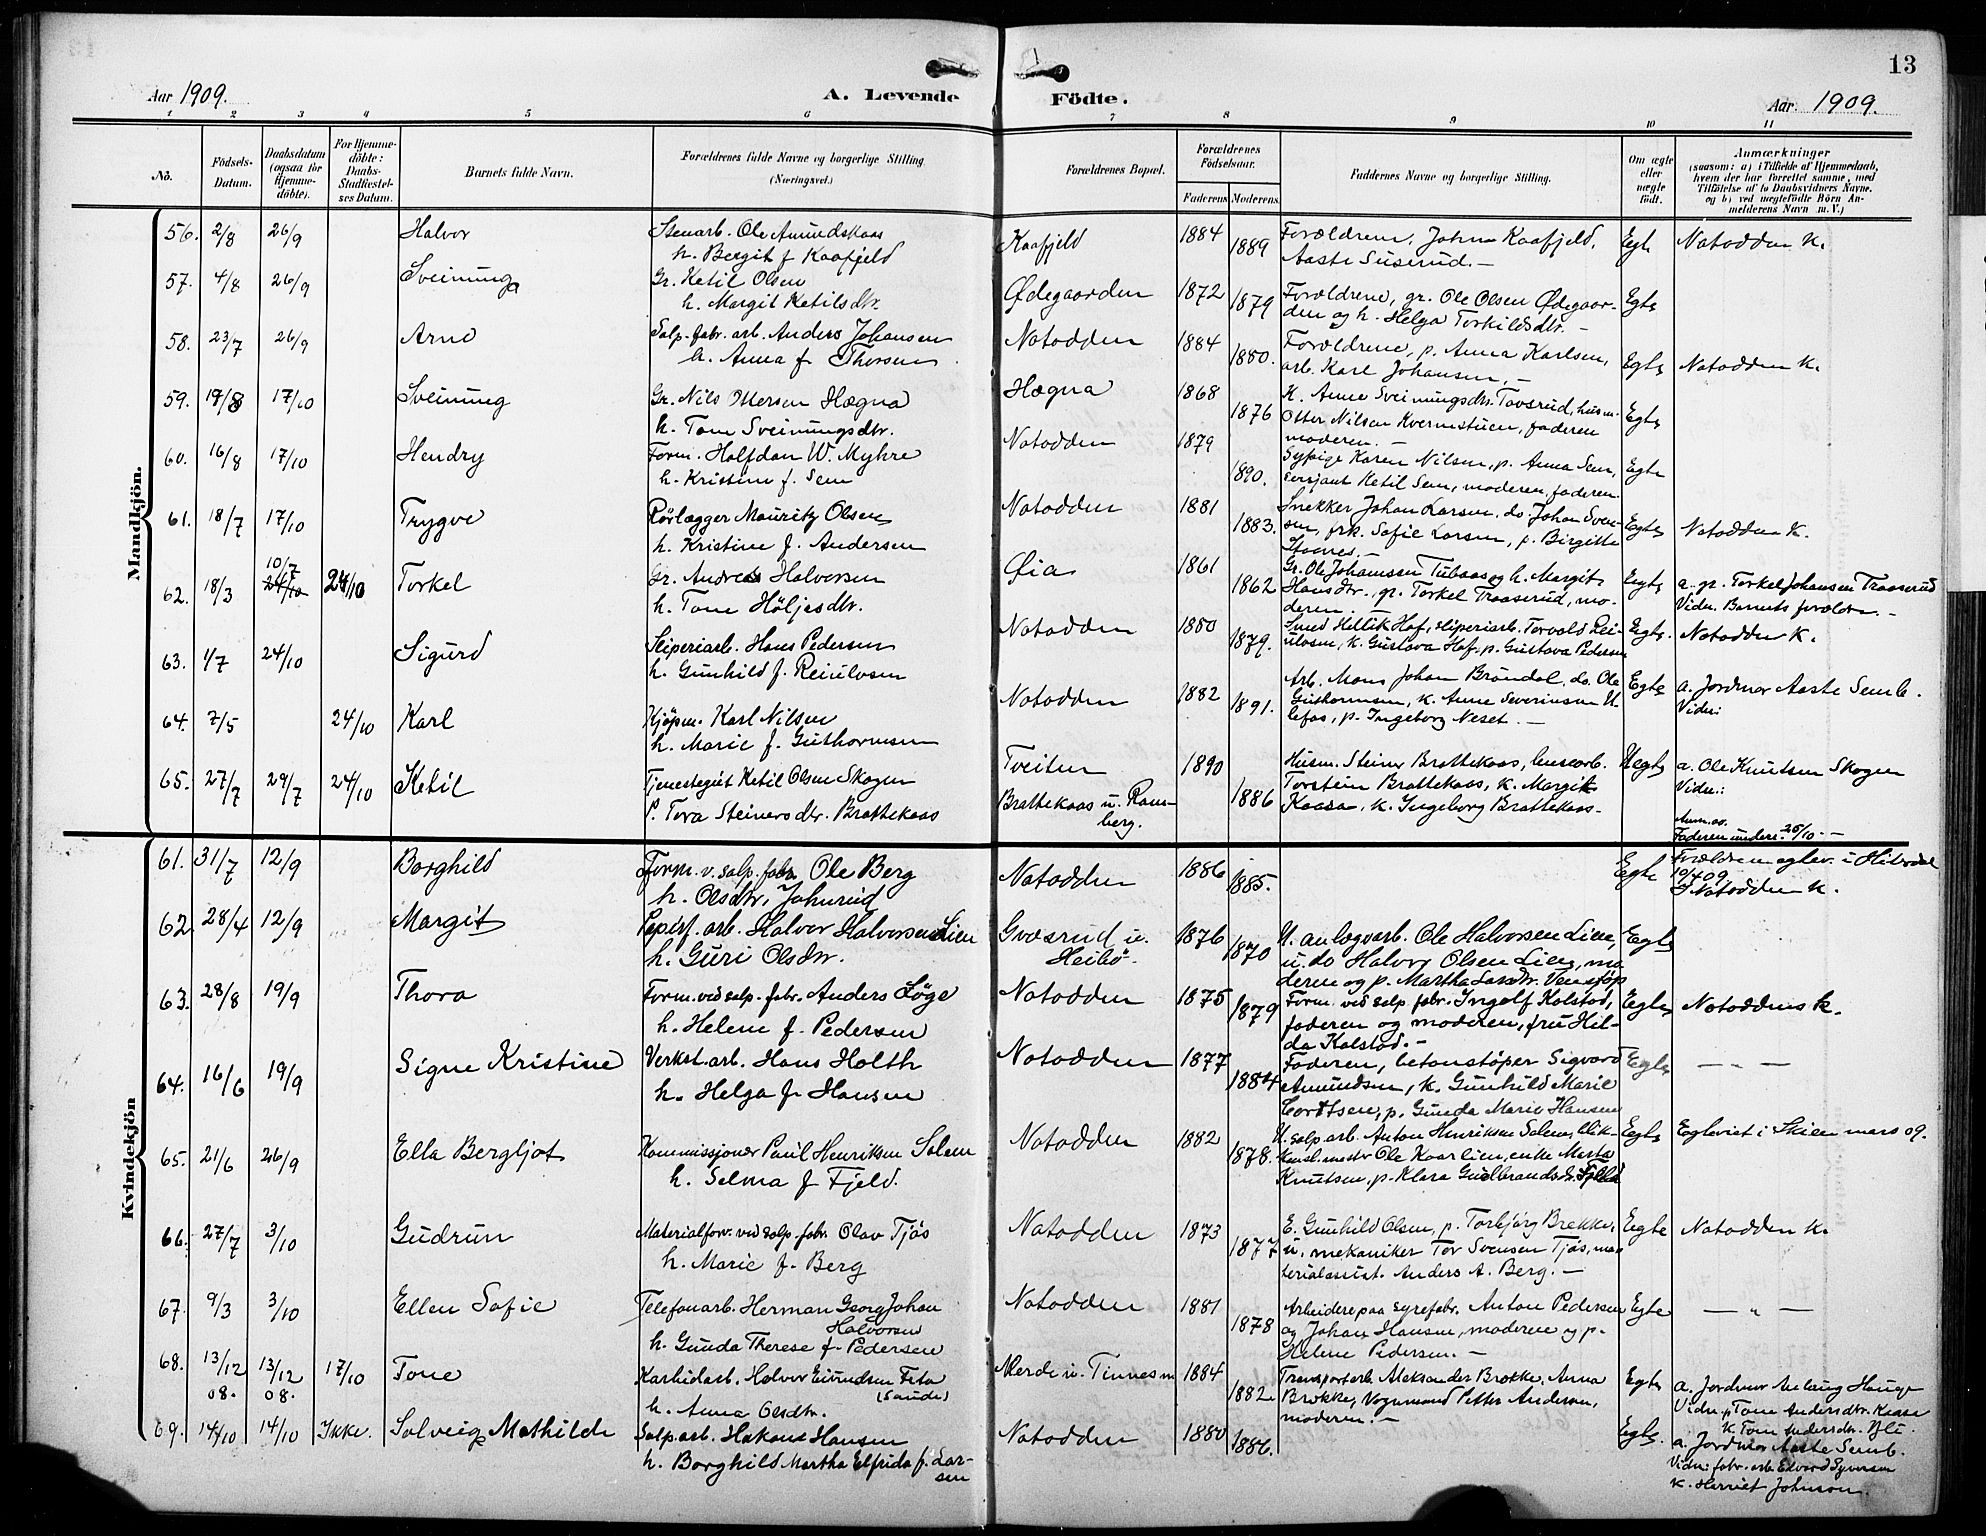 13
Aar 1909.
A. Levende Födte.
Aar 1909.
1 2 3 4 5 6 7 8 9 10 11
No.
Födsels-Datum.
Daabsdatum (ogsaa for Hjemme-döbte).
For Hjemme-döbte: Daabs-Stadfæstel-ses Datum.
Barnets fulde Navn.
Forældrenes fulde Navne og borgerlige Stilling. (Næringsvei.)
Forældrenes Bopæl.
Forældrenes Födselsaar.
Faderens Moderens
Faddernes Navne og borgerlige Stilling.
Om ægte eller uægte födt.
Anmærkninger
(saasom: a) i Tilfælde af Hjemmedaab, hvem der har forrettet samme, med Tilföielse af to Daabsvidners Navne, og b) ved uægtefödte Börn Anmelderens Navn m. V.)
Mandkjön.
56. 2/8 26/9 Halvor
Stenarb. Ole Amundskaas
h. Bergit f. Kaafjeld
Kaafjeld 1884 1889
Forældrene, Johan Kaafjeld,
Aaste Suserud. —
Egte Notodden K.
57. 4/8 26/9 Sveinung
Gr. Ketil Olsen
h. Margit Ketilsdtr.
Ødegaarden 1872 1879
Forældrene, gr. Ole Olsen Ødegaar-
den og h. Helga Torkildsdtr. —
Egte
58. 23/7 26/9 Arne
Salp. fabr. arb. Anders Johansen
h. Anna f. Thorsen
Notodden 1884 1880.
Forældrene, p. Anna Karlsen,
arb. Karl Johansen. —
Egte Notodden K.
59. 19/8 17/10 Sveinung
Gr. Nils Hægna
h. Tone Sveinungsdtr.
Hægna 1868 1876
K. Anne Sveinungsdtr. Tovsrud, husm.
Otter Nilsen Kvernstuen, faderen
moderen. —
Egte
60. 16/8 17/10 Hendry
Form. Halfdan W. Myhre
h. Kristine f. Sem
Notodden 1879 1890.
Sypige Karen Nilsen, p. Anna Sem,
sersjant Ketil Sem, moderen, faderen.
Egte
61. 18/7 17/10 Trygve
Rörlægger Mauritz Olsen
h. Kristine f. Andersen
Notodden 1881 1883.
Snekker Johan Larsen, do. Johan Sven-
sen, frk. Sofie Larsen, p. Birgitte
Egte Notodden K.
62. 18/3 10/7 24/10 24/10 Torkel
Gr. Andreas Halvorsen
h. Tone Höljesdtr.
Øia 1861 1862
Gr. Ole Johannssen Tubaas og h. Margit
Hansdtr., gr. Torkel Traaserud, mo-
deren. —
Egte
a. gr. Torkel Johansen Traaserud
Vidn. Barnets forældre. —
63. 1/7 24/10 Sigurd
Sliperiarb. Hans Pedersen
h. Gunhild f. Reiulvsen
Notodden 1880 1879.
Smed Hellik Hof, sliperiarb. Torvald Rei-
ulvsen, k. Gustava Hof, p. Gustava Pedersen
Egte. Notodden K.
64. 7/5 24/10 Karl
Kjöpm. Karl Nilsen
h. Marie f. Guthormsen
Notodden 1882 1891.
Arb. Mons Johan Bröndal, do. Ole
Guthormsen, k. Anne Severinsen U-
lefos, p. Ingeborg Neset. —
Egte
a. Jordmor Aaste Semb.
Vidn:
65. 27/7 29/7 24/10 Ketil
Tjenestegut Ketil Olsen Skogen
P. Tora Steinersdtr. Brattekaas
Tveiten
Brattekaas u. Rams-
berg.
1890 1886
Husm. Steiner Brattekaas, arb.
Torstein Brattekaas, k. Margit
Kaasa, k. Ingeborg Brattekaas.
Uegte
a. Ole Knutsen Skogen
Vidn.:
Faderen underr. 26/10. —
Kvindekjön
61. 31/7 12/9 Borghild
Form. v. salp. fabr. Ole Berg
h. Olsdtr. Johnsrud
Notodden 1886 1885.
Egte
Forældren egtev. i Hiterdal
10/4 09.
Notodden K.
62. 28/4 12/9 Margit
Papirf. arb. Halvor Halvorsen Lien
h. Guri Olsdtr.
Gvåsrud u.
Heibö.
1876 1870
U. anlægarb. Ole Halvorsen Lien,
u. do Halvor Olsen Lien, mo-
deren og p. Martha Larsdtr. Venstöp
Egte
63. 28/8 19/9 Thora
Form. ved salp. fabr. Anders Löge
h. Helene f. Pedersen
Notodden 1875 1879
Form. ved salp fabr. Ingolf Kolstad,
faderen og moderen, fru Hil-
da Kolstad. —
Egte Notoddens K.
64. 16/6 19/9 Signe Kristine
Verkst. arb. Hans Holth
h. Helga f. Hansen
Notodden 1877 1884
Faderen, betonstöper Sigvard
Amundsen, k. Gunhild Marie
p. Gunda Marie Hansen
Egte — „ —
65. 21/6 26/9 Ella Bergljot
Kommissjonær Paul Henriksen Solem
h. Selma f. Fjeld.
Notodden 1882 1878.
U. salp. arb. Anton Henriksen Solem, blik-
Ole Kaarlien, enke Marta
Knutsen, p. Klara Gulbrandsdtr.
Egte Egteviet i Skien mars 09.
66. 27/7 3/10 Gudrun
Materialforv. ved salp. fabr. Olav Tjös
h. Marie f. Berg
Notodden 1873 1877
E. Gunhild Olsen, p. Torbjörg Brekke,
u. mekaniker Tor Svensen Tjös, ma-
terialassist. Anders A. Berg. —
Egte Notodden K.
67. 9/3 3/10 Ellen Sofie
Telefonarb. Herman Georg Johan
Halvorsen
h. Gunda Therese f. Pedersen
Notodden 1881 1878
Arbeidere paa syrefabr. Anton Pedersen
og Johan Hansen, moderen og p.
Helene Pedersen. —
Egte — „ —
68. 13/12 08. 13/12 08. 17/10 Tone
Karbidarb. Halvor Eivindsen
(Sande)
h. Anna Olsdtr.
u. Tinnesm 1884 1882
Transportarb. Aleksander Brokke, Anna
Brokke, Vognmand Petter Andersen,
moderen. —
Egte
a. Jordmor Anlaug Hauge
Vidn. p Tone Andersdtr. Kaasa
k. Tone Andersdtr.
69. 14/10 14/10 Ikke. Solveig Mathilde
Salp. arb. Hakon Hansen
h. Borghild Martha Elfrida f. Lar-
sen
Notodden 1880 1886.
Egte.
a. Jordmor Aaste Semb.
Vidn: fabr. arb. Edvard Syversen
k. Harriet Johnson.